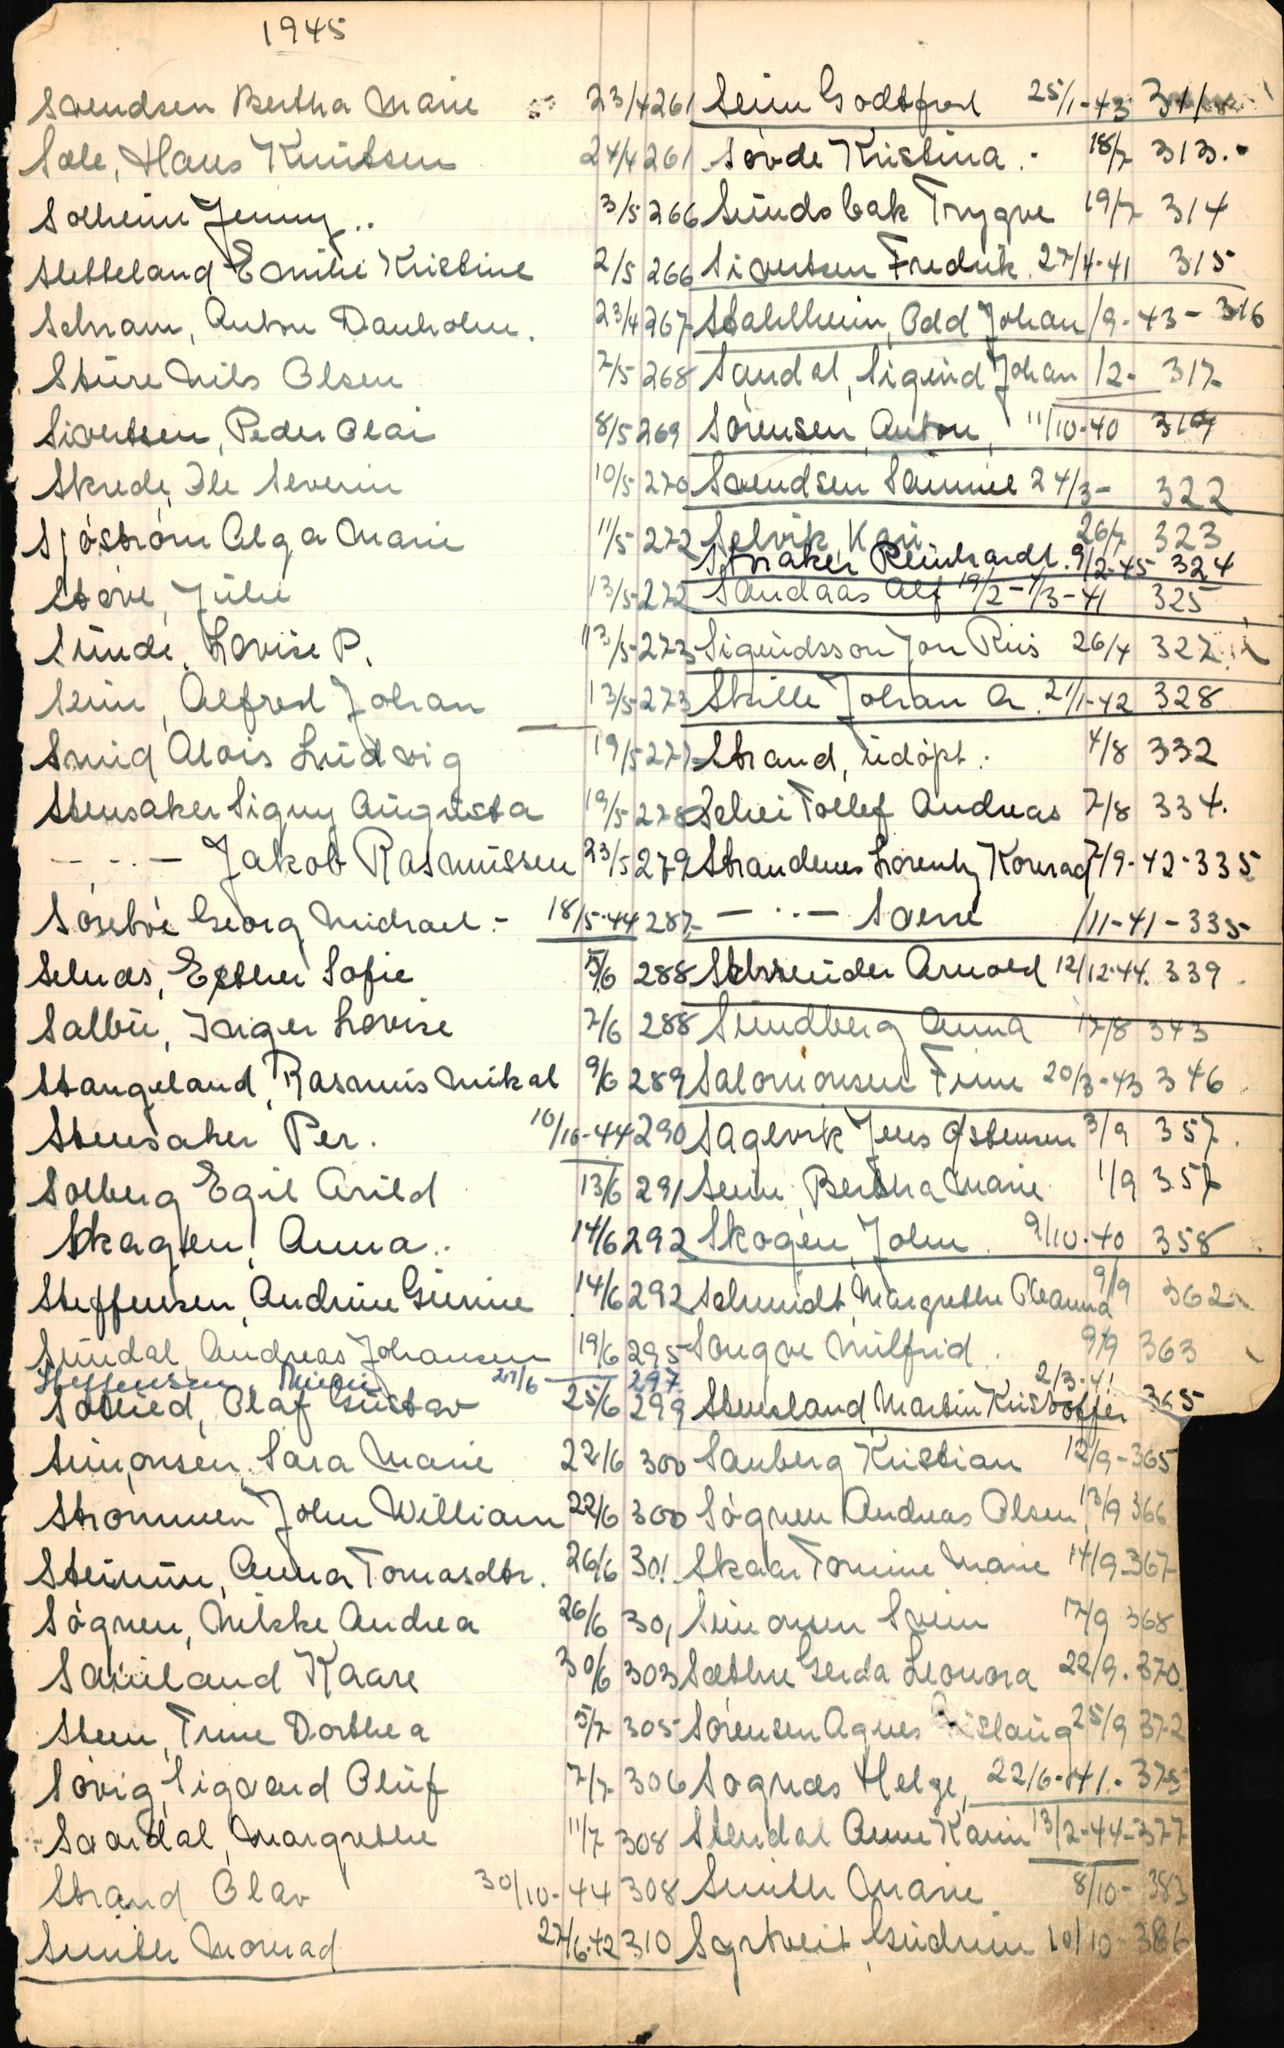 1945
Svendsen Bertha Marie 23/4 261
Sæle, Hans Knutsen 24/4 261
Solheim Jenny .. 3/5 266
Sletteland Emilie Kristine 2/5 266
Schram, Anton Danholm. 23/4 267
Sture Nils Olsen 7/5 268
Sivertsen, Peder Olai 8/5 269
Skrede, Ole Severin 10/5 270
Sjöström Olga Marie 11/5 272
Støve, Julie 13/5 272
Sunde, Lovise P. 13/5 273
Seim, Alfred Johan 13/5 273
Smid Alois Ludvig 19/5 277
Stensaker Signy Augusta 19/5 278
— " — Jakob Rasmussen 23/5 279
Söseboe Georg Michael - 18/5-44 287
Selnes, Esther Sofie 5/6 288
Salbu, Inger Lovise 7/6 288
Stangeland, Rasmus Mikal 9/6 289
Stensaker Per. 10/10-44 290
Solberg Egil Arild 13/6 291
Skagen, Anna .. 14/6 292
Steffensen, Andrine Gurine 14/6 292
Sundal, Andreas Johansen 19/6 295
Steffensen, 21/6 297
Olaf Gustav 25/6 299
Simonsen, Sara Marie 22/6 300
Strömmen John William 22/6 300
Steinum, Anna Tomasdtr. 26/6 301
Søgnen, Milske Andrea 26/6 301
Saueland Kaare 30/6 303
Steen, Trine Dorthea 5/7 305
Sövig, Sigvard Oluf 7/7 306
Svardal, Margrethe 11/7 308
Strand Olav 30/10-44 308
Smith Monrad 27/6-42 310
Seim Godtfred 25/1-43 311
Søvde Kristina .- 18/7 313.
Sundsbak Trygve 19/7 314
Sivertsen Fredrik. 27/4-41 315
Stahlheim, Odd Johan /9-43- 316
Sandal, Sigurd Johan /2- 317
Sörensen, Anton, 11/10-40 319
Svendsen Sammie 24/3- 322
Selvik Kari 26/7 323
Straker Reinhardt. 9/2-45 324
Sandaas Alf 19/2-1/3-41 325
Sigurdsson Jon Rus 26/4 327
Skille Johan A. 21/1-42 328
Strand, udöpt. 4/8 332
Schei Tollef Andreas 7/8 334.
Strandenes Lorentz Konrad 7/9-42-335
— " — Sverre /11-41-335
Schreuder Arnold 12/12-44. 339.
Sundberg Anna 17/8 343
Salomonsen Finn 20/3-43 346.
Sagevik Jens Østensen 3/9 357.
Seim, Bertha Marie 1/9 357
Skogen, John. 9/10-40 358.
Schmidt, Margrethe Oleanna 9/9 362
Songve Milfrid. 9/9 363
Stensland, Martin Kristoffer 2/3-41 365
Sanberg Kristian 12/9-365
Søgnen Andreas Olsen 13/9 366
Skaar Tomine Marie 14/9-367
Simonsen Svein 17/9 368
Sæthre Gerda Leonora 22/9. 370.
Sörensen Agnes Aslaug 25/9 372
Sognæs Helge, 22/6-41.-375
Stendal Anne Karin 13/2-44-377
Smith Marie 8/10-383
Sørtveit Gudrun 10/10-386